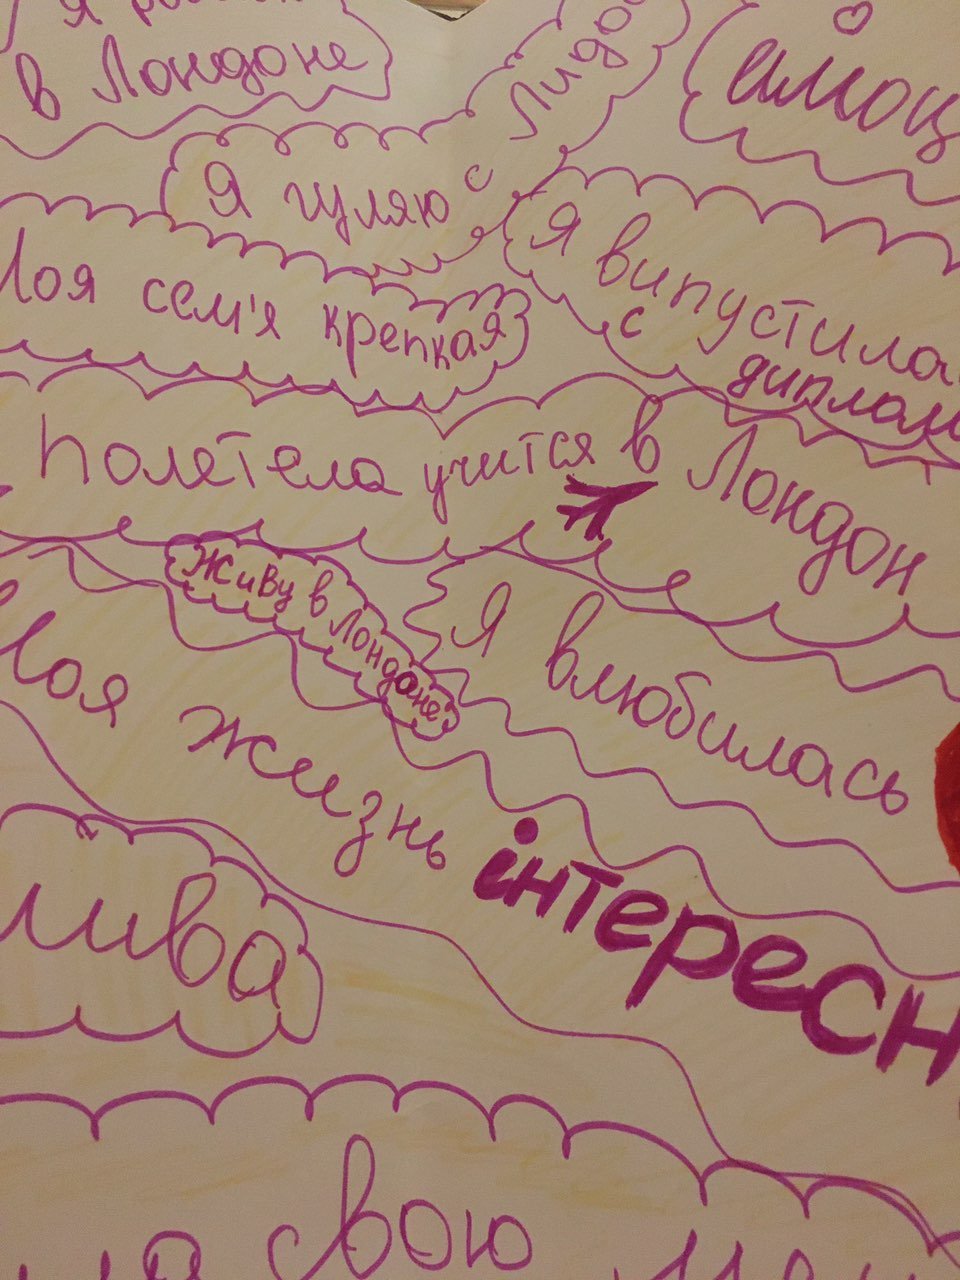 в Лондоне
Я гуляю с Лидо
емоц
Моя сем'я крепкая
Я випустила
с дипломо
Полетела учится в Лондон
Живу в Лондоне
Я влюбилась
Моя жизнь інтересн
лива
свою